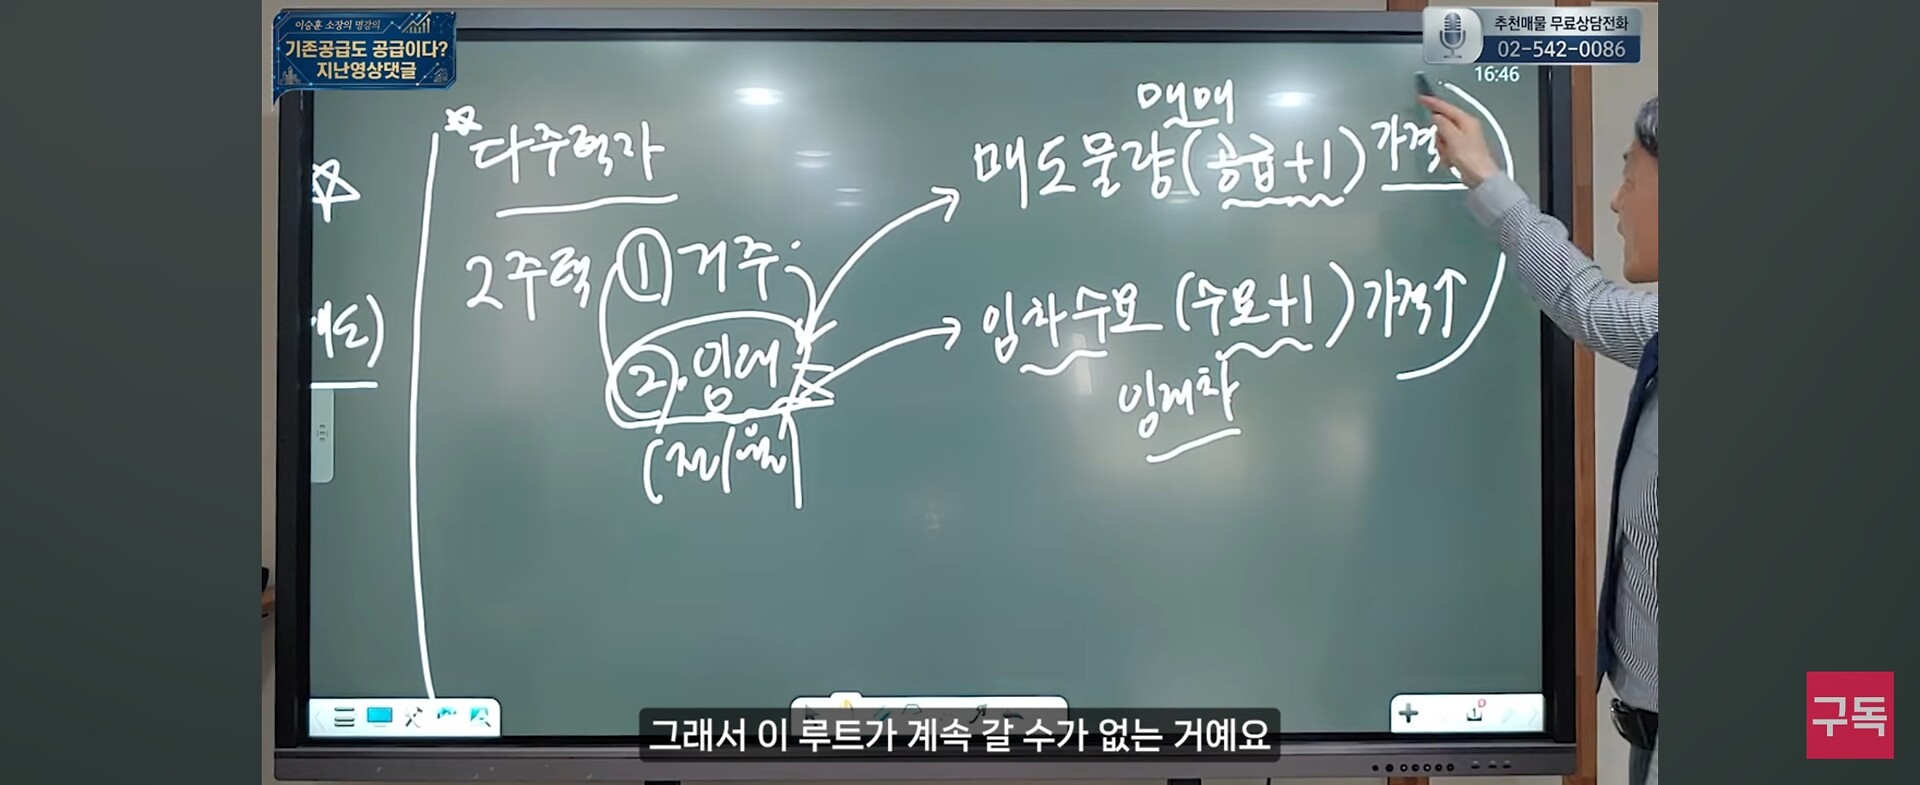 이승훈 소장의 명강의
기존공급도 공급이다?
지난영상댓글
추천매물 무료상담전화
02-542-0086
16:46
다주택자
2주택 ① 거주
②. 임대
(전/월)
매매
매도물량(공급+1) 가격
임차수요 (수요+1) 가격↑
임대차
그래서 이 루트가 계속 갈 수가 없는 거예요
구독